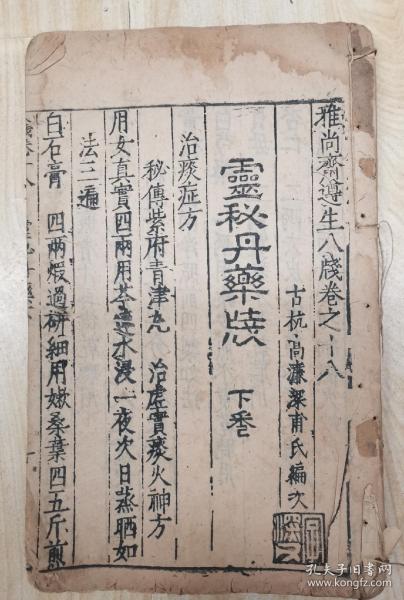 雅尚齋遵生八牋卷之十八
古杭高濂深甫氏編次
靈秘丹藥牋 下卷
治痰症方
秘傳紫府青津丸 治虛實痰火神方
用女真實四兩用芩連水浸一夜次日蒸晒如
法三遍
白石膏 四兩煆過研細用嫩桑葉四五斤煎
孔夫子旧书网
www.kongfz.com